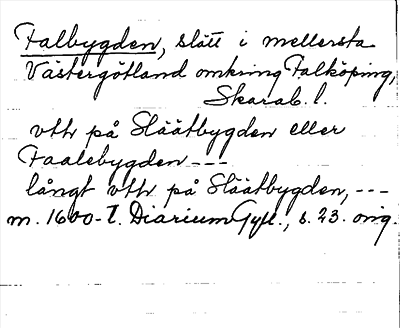 Falbygden, slätt i mellersta
Västergötland omkring Falköping,
Skarab. l.
vthr på Släätbygden eller
Faalebygden ---
långt vthr på Släätbygden, ---
m. 1600-t. Diarium Gyll., s. 23. orig.